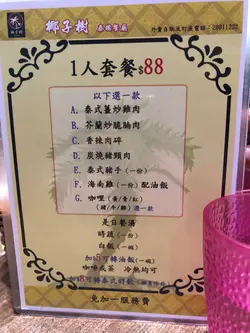 椰子樹 泰國餐廳
外賣自取及訂座電話：28011222
1人套餐$88
以下選一款
A. 泰式薑炒雞肉
B. 芥蘭炒脆腩肉
C. 香辣肉碎
D. 炭燒豬頸肉
E. 泰式豬手(一份)
F. 海南雞(一份)配油飯
G. 咖喱(黃/青/紅)
(豬/牛/雞)選一款
是日餐湯
時蔬(一份)
白飯(一碗)
加$3可轉油飯(一碗)
咖啡或茶 冷熱均可
加$8可轉泰式特飲
免加一服務費